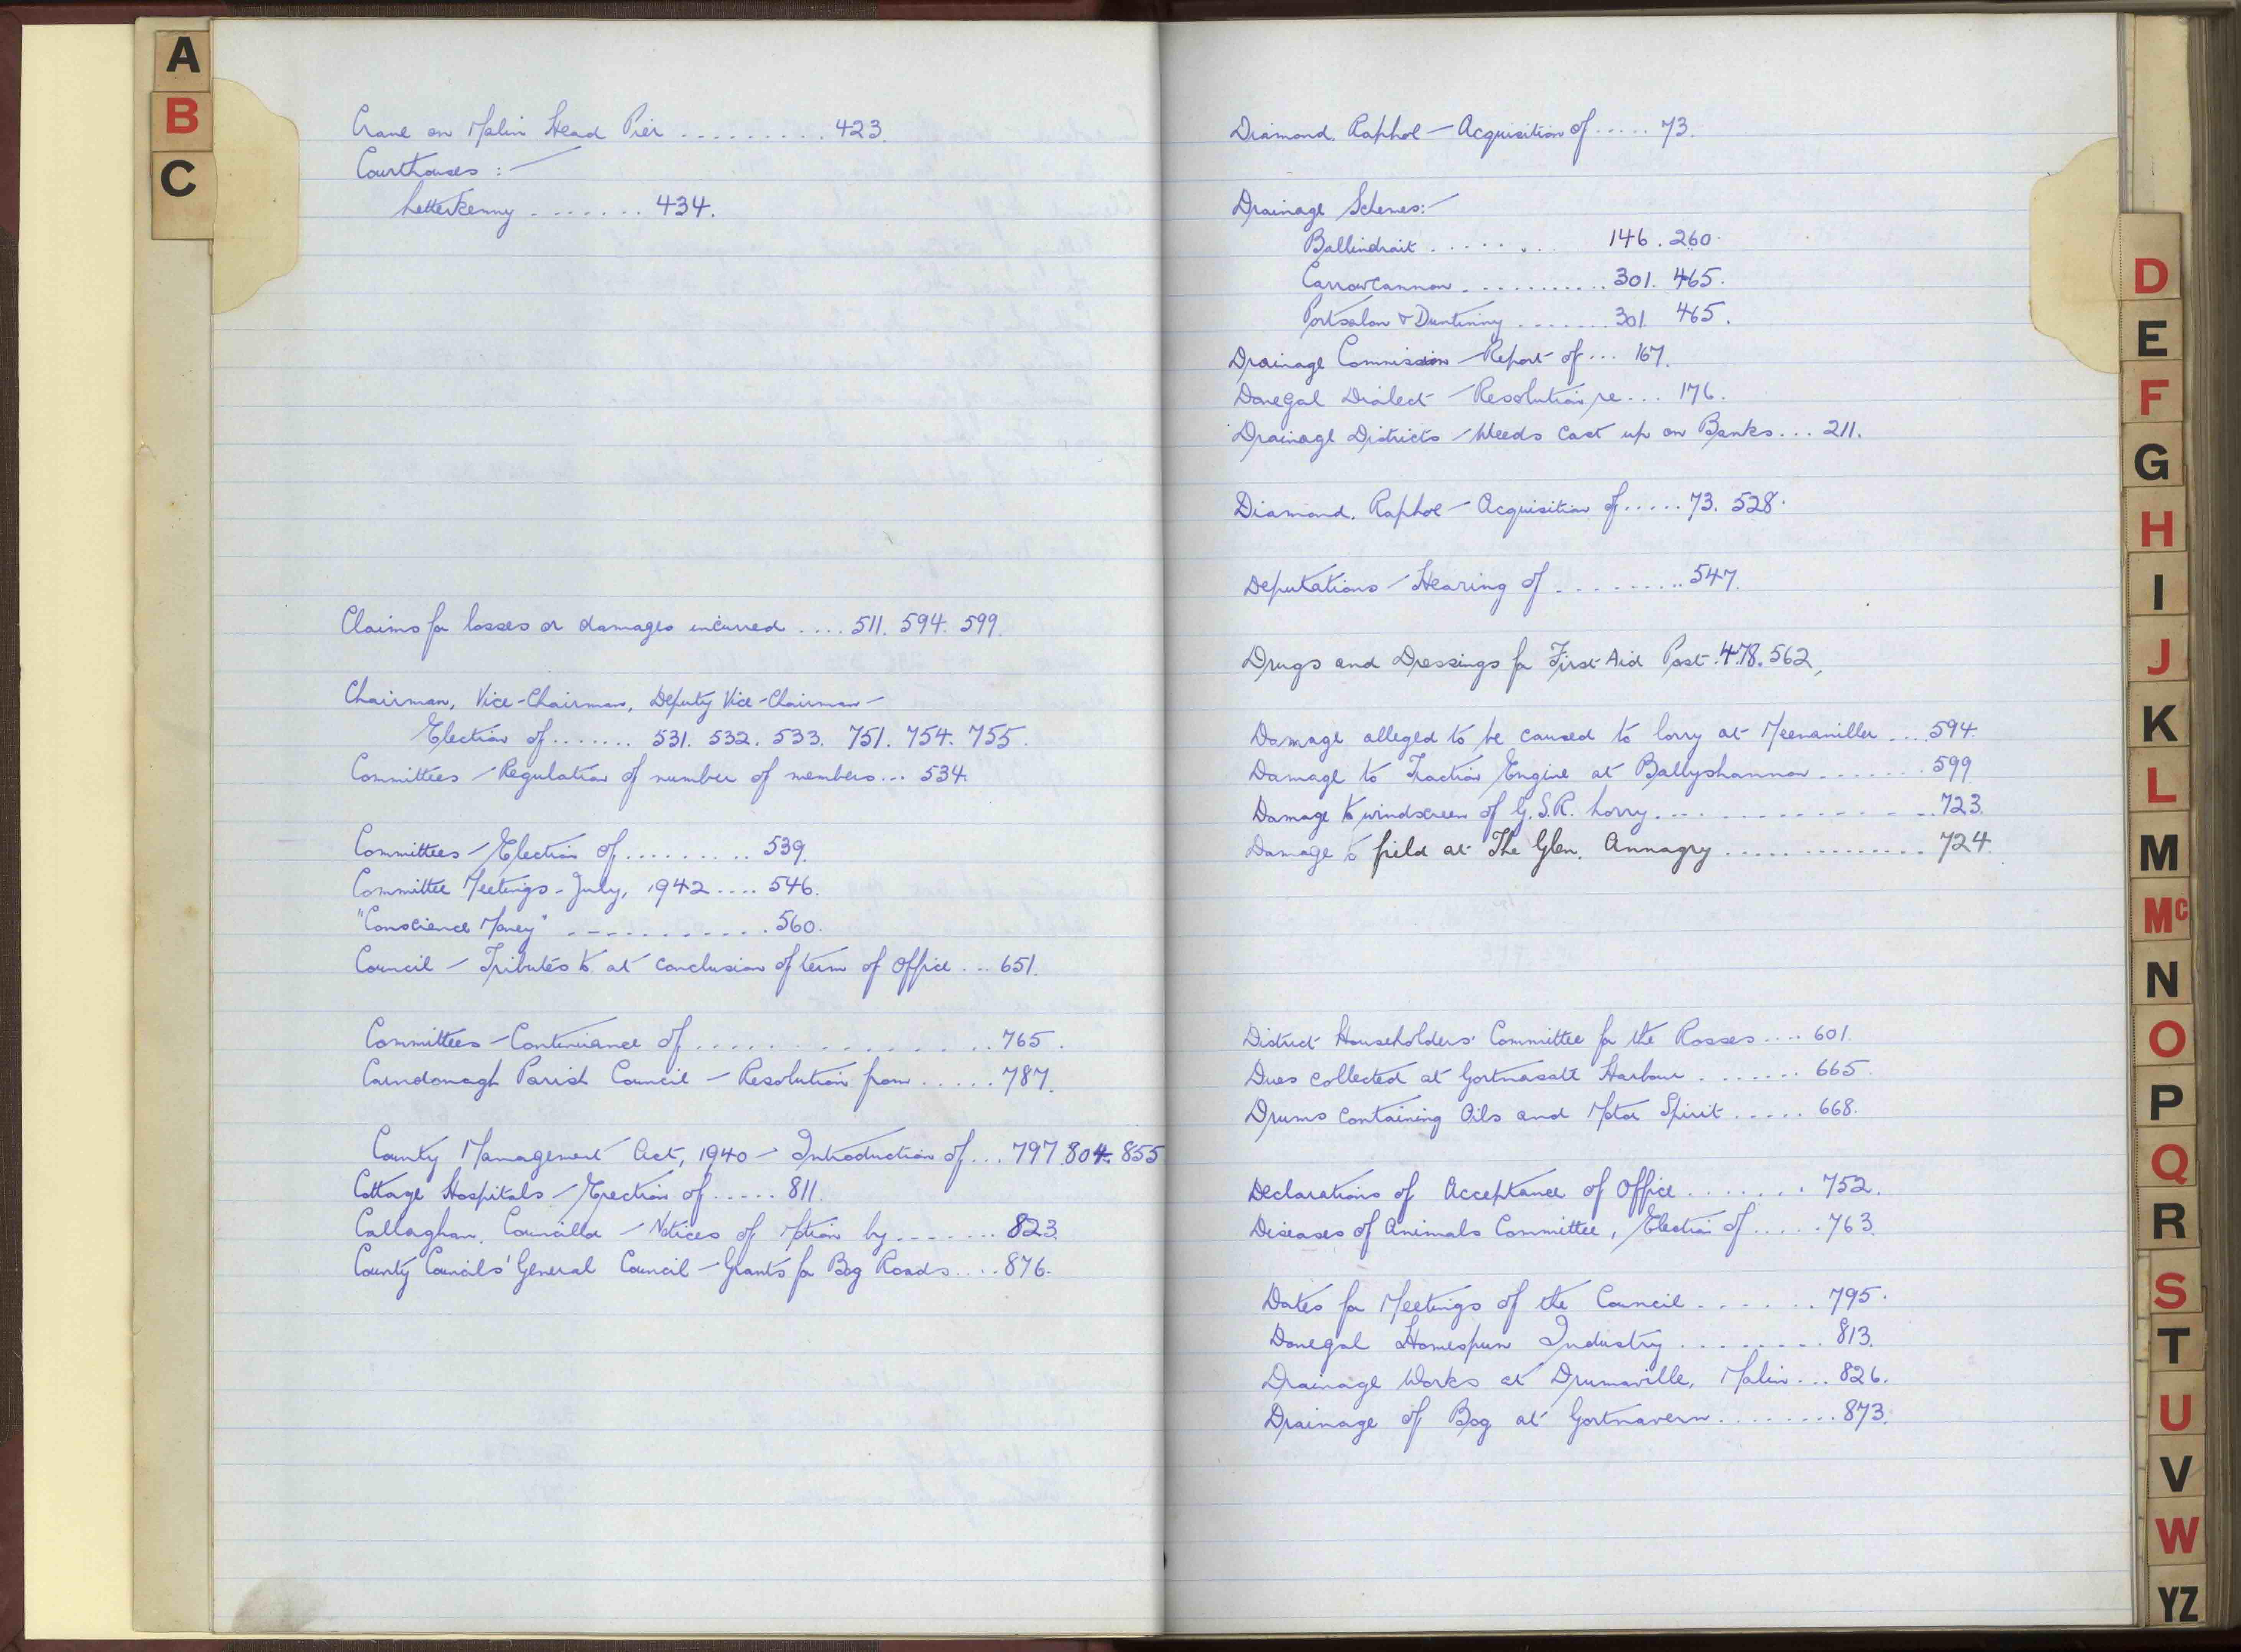 A
B
C
Crane on Malin Head Pier ......... 423.
Courthouses :-
Letterkenny ....... 434.
Claims for losses or damages incurred .... 511. 594. 599.
Chairman, Vice-Chairman, Deputy Vice-Chairman -
Election of ....... 531. 532. 533. 751. 754. 755.
Committees - Regulation of number of members... 534.
Committees - Election of .......... 539.
Committee Meetings - July, 1942 .... 546.
"Conscience Money" ........... 560.
Council - Tributes to at conclusion of term of Office ... 651.
Committees - Continuance of ............... 765.
Carndonagh Parish Council - Resolution from ..... 787.
County Management Act, 1940 - Introduction of ... 797. 804. 855
Cottage Hospitals - Erection of ..... 811.
Callaghan, Councillor - Notices of Motion by ....... 823.
County Councils' General Council - Grants for Bog Roads .... 876.
Diamond, Raphoe - Acquisition of ..... 73.
Drainage Schemes:-
Ballindrait ....... 146. 260.
Carrowcannon ........... 301. 465.
Portsalon & Duntinny ....... 301. 465.
Drainage Commission - Report of ... 167.
Donegal Dialect - Resolution re ... 176.
Drainage Districts - Weeds cast up on Banks ... 211.
Diamond, Raphoe - Acquisition of ..... 73. 528.
Deputations - Hearing of ......... 547.
Drugs and Dressings for First-Aid Post. 478. 562.
Damage alleged to be caused to lorry at Meenaniller .... 594.
Damage to Traction Engine at Ballyshannon ....... 599
Damage to windscreen of G.S.R. Lorry ............... 723.
Damage to field at The Glen, Annagry ............... 724.
District Householders' Committee for the Rosses .... 601.
Dues collected at Gortnasate Harbour ....... 665.
Drums containing Oils and Motor Spirit ..... 668.
Declarations of Acceptance of Office ....... 752.
Diseases of Animals Committee, Election of ..... 763.
Dates for Meetings of the Council ...... 795.
Donegal Homespun Industry ........ 813.
Drainage Works at Drumaville, Malin ... 826.
Drainage of Bog at Gortnavern ........ 873.
D
E
F
G
H
I
J
K
L
M
Mc
N
O
P
Q
R
S
T
U
V
W
YZ